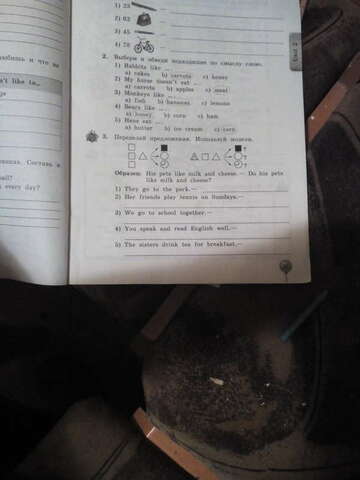 1) 23
2) 62
3) 45
4) 78
Unit 2
2. Выбери и обведи подходящие по смыслу слова.
1) Rabbits like ... .
a) cakes b) carrots c) honey
2) My horse doesn't eat ... .
a) carrots b) apples c) meat
3) Monkeys like ... .
a) fish b) bananas c) lemons
4) Bears like ... .
a) honey b) corn c) ham
5) Hens eat ... .
a) butter b) ice cream c) corn
3. Переделай предложения. Используй модели.
Образец: His pets like milk and cheese. — Do his pets
like milk and cheese?
1) They go to the park.—
2) Her friends play tennis on Sundays.—
3) We go to school together.—
4) You speak and read English well.—
5) The sisters drink tea for breakfast.—
every day?